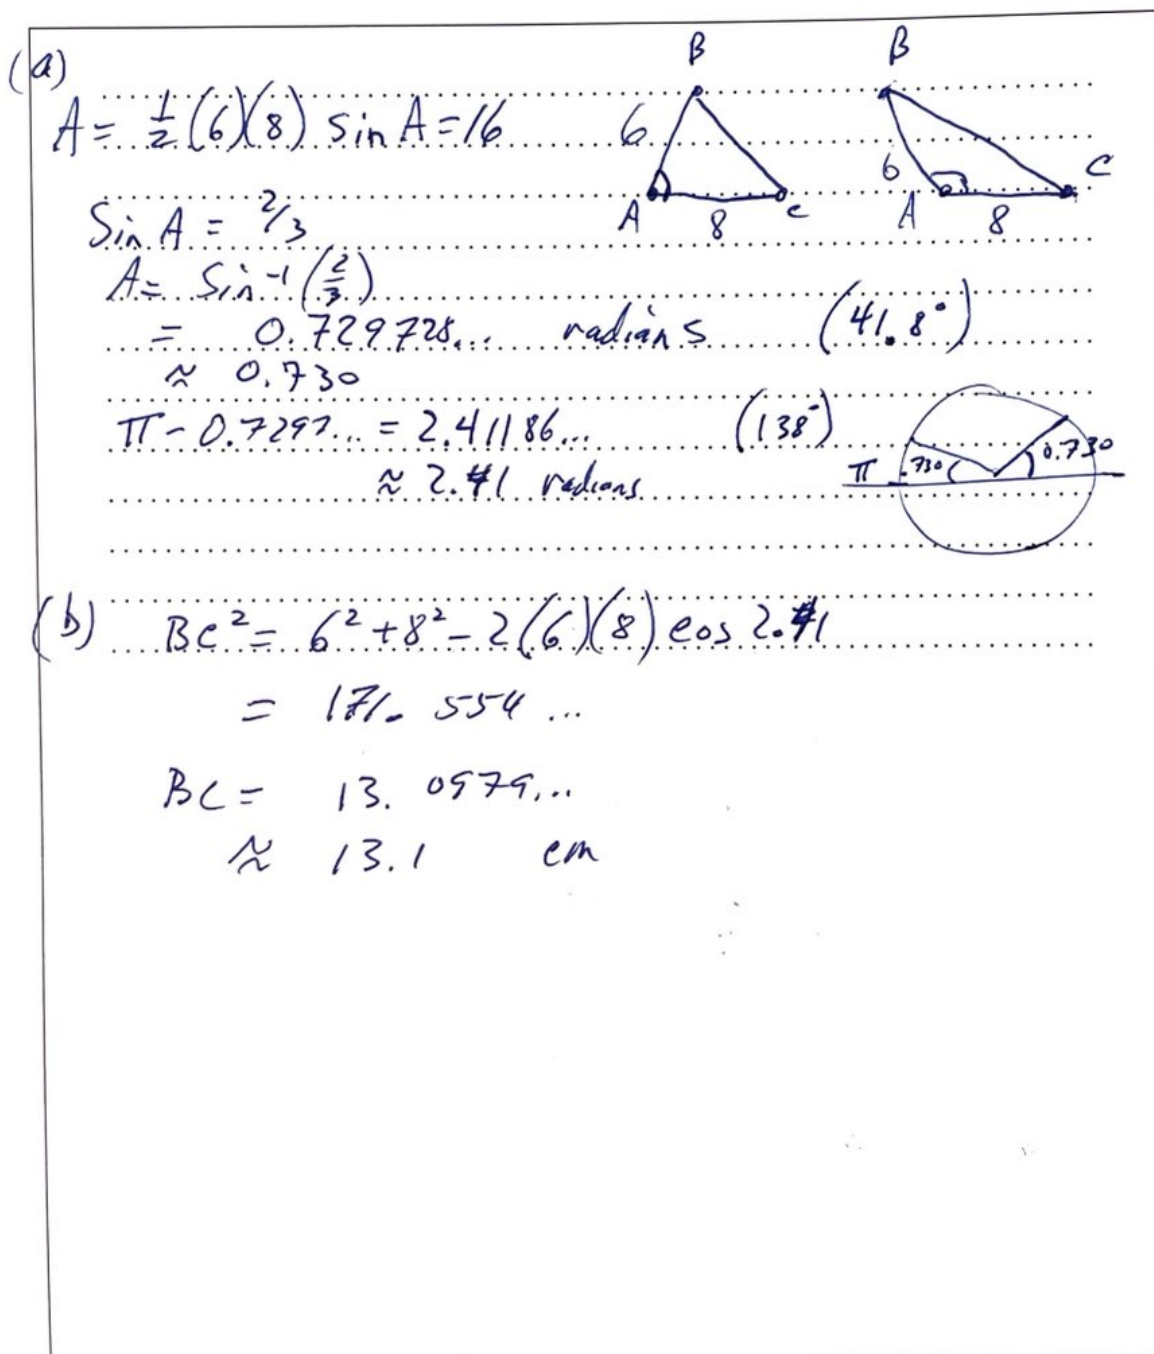 (a)
A = 1/2 (6)(8) sin A = 16
Sin A = 2/3
A = Sin⁻¹ (2/3)
= 0.729728... radians (41.8°)
≈ 0.730
π - 0.7297... = 2.41186... (138°)
≈ 2.41 radians
B
6
A
8
C
B
6
A
8
C
π
.730
0.730
(b) BC² = 6² + 8² - 2(6)(8) cos 2.41
= 171.554...
BC = 13.0979...
≈ 13.1 cm